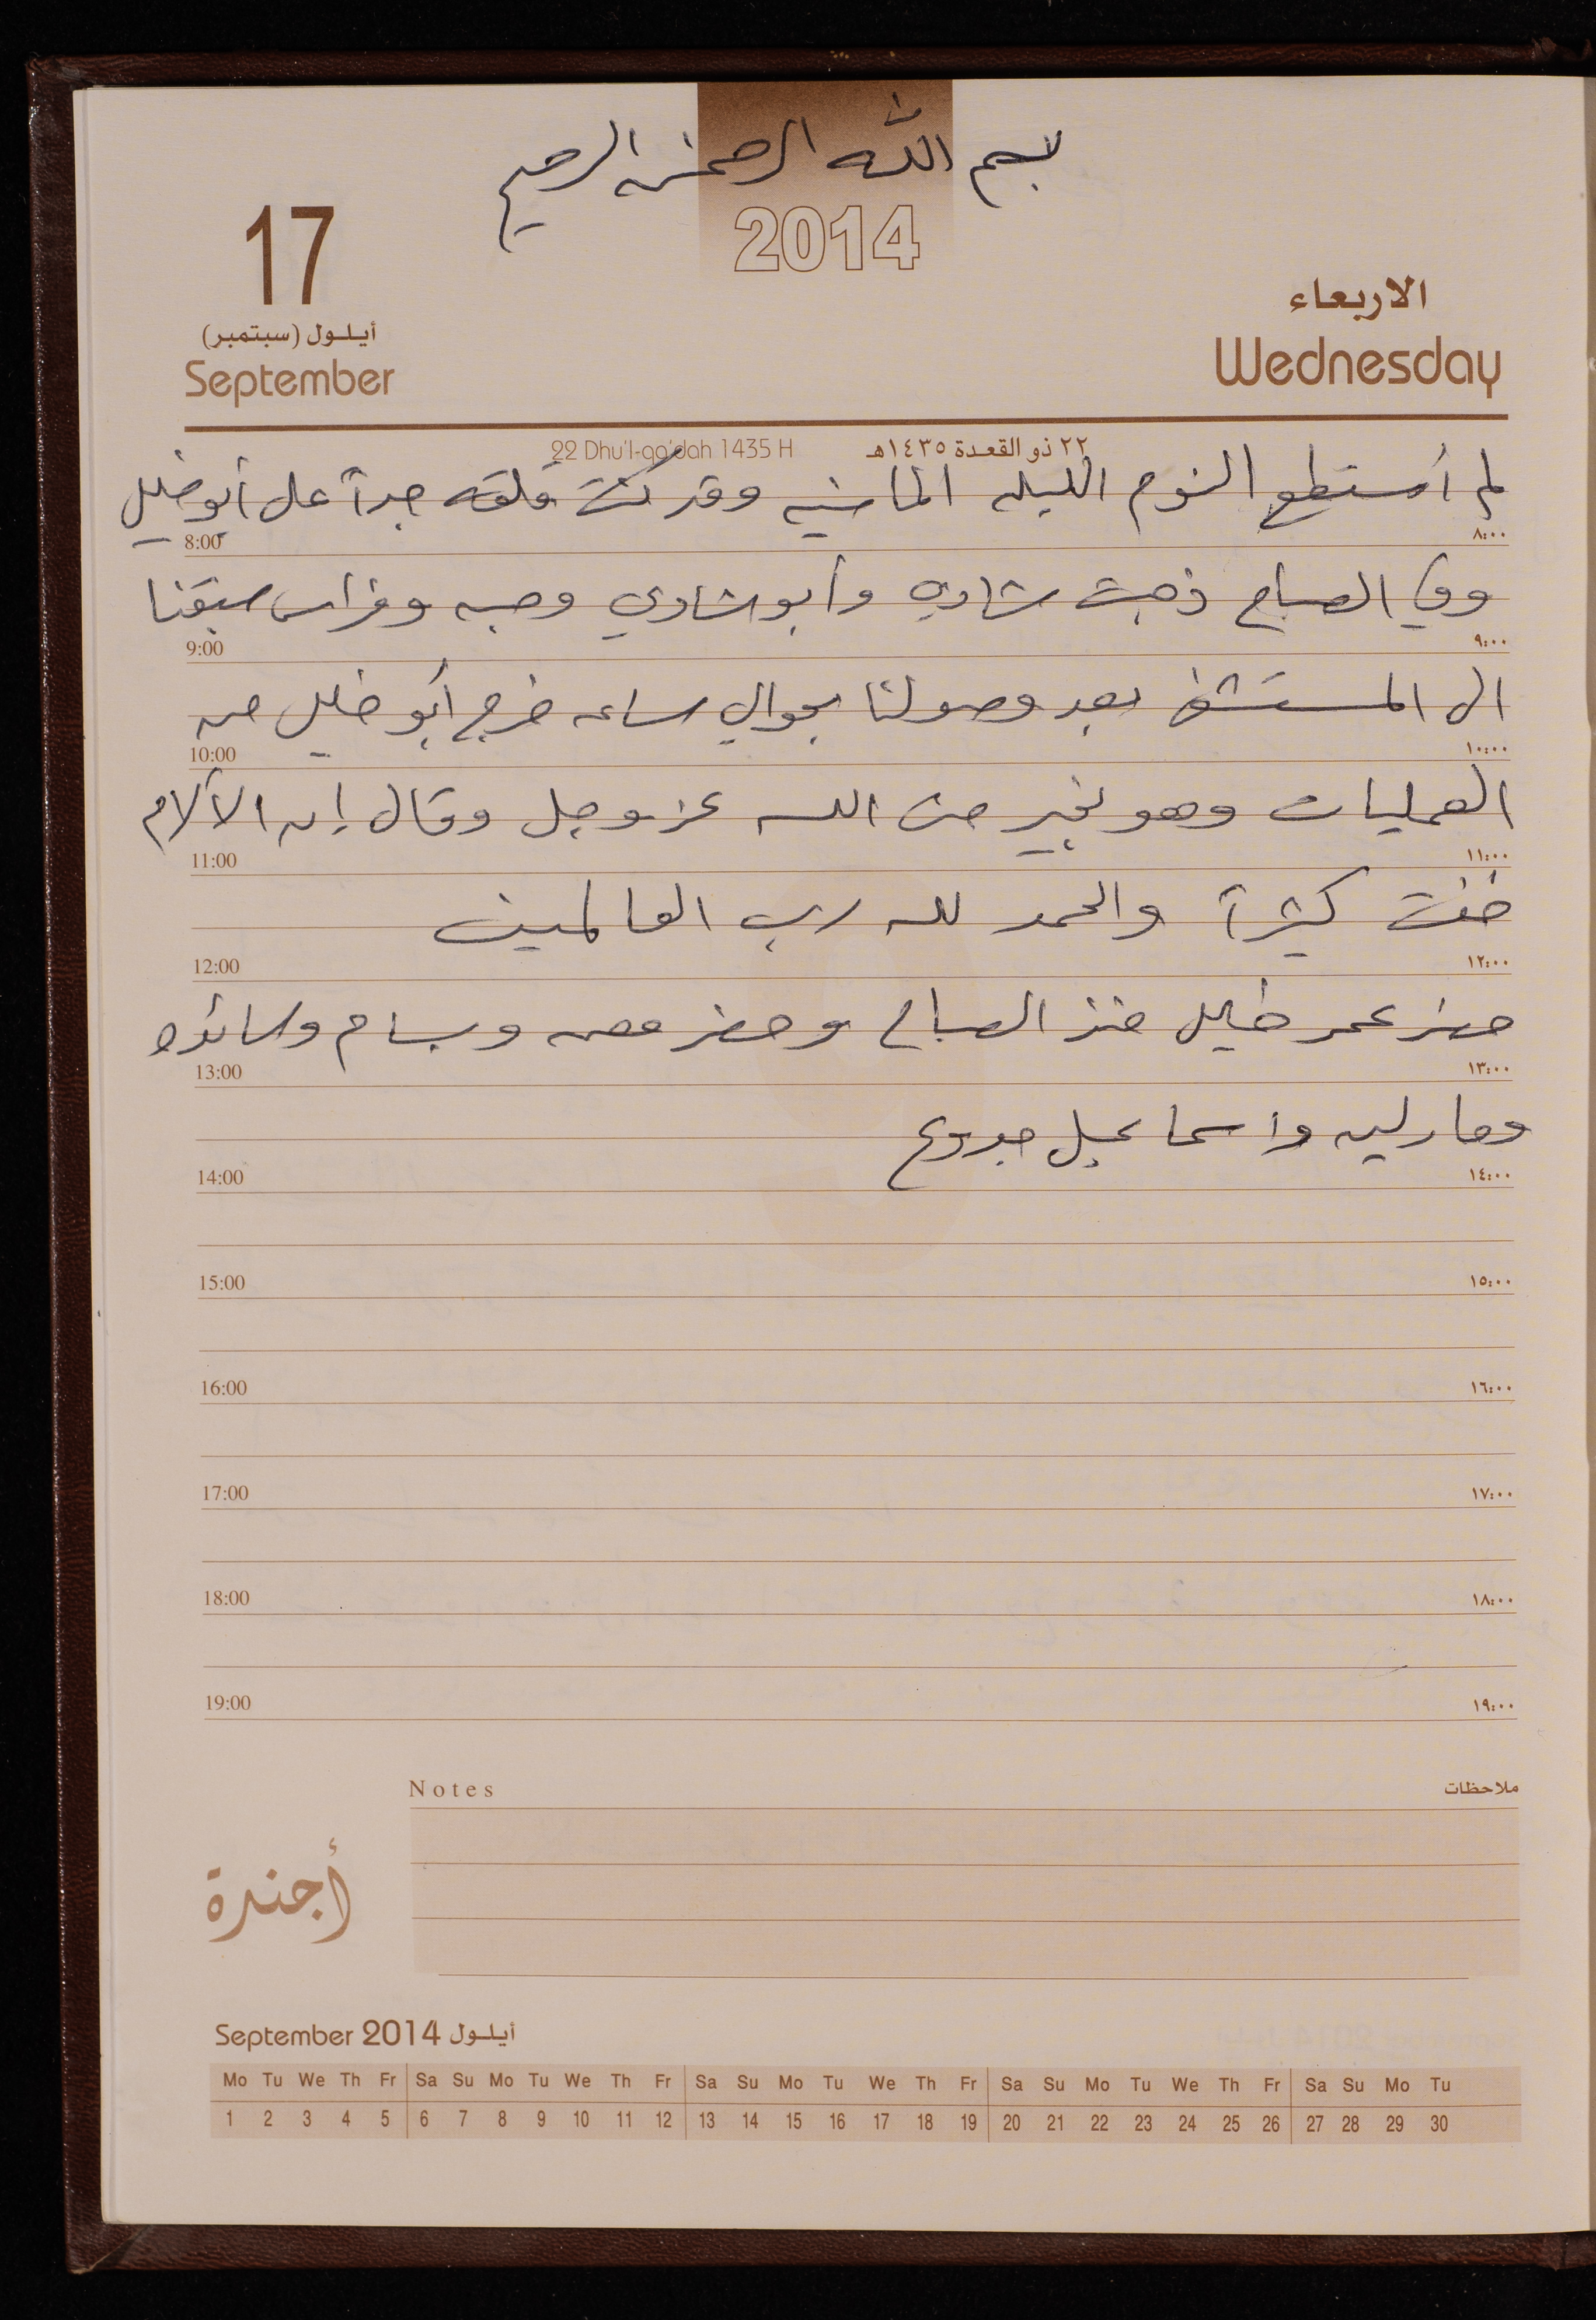 بسم الله الرحمن الرحيم
2014
17
أيلول (سبتمبر)
September
الاربعاء
Wednesday
22 Dhu'l-qa'dah 1435 H
٢٢ ذو القعدة ١٤٣٥هـ
لم أستطع النوم الليله الماضيه وقد كنت قلقه جداً على أبو خليل
8:00 ٨:٠٠
وفي الصباح ذهبت شادي وأبو شادي وفراس سبقنا
9:00 ٩:٠٠
الى المستشفى بعد وصولنا بحوالي ساعه خرج أبو خليل من
10:00 ١٠:٠٠
العمليات وهو بخير من الله عز وجل وقال إن الآلام
11:00 ١١:٠٠
خفت كثيراً والحمد لله رب العالمين
12:00 ١٢:٠٠
حضر عمر خليل منذ الصباح وحضر وبسام
13:00 ١٣:٠٠
ومارلين واسماعيل جدوع
14:00 ١٤:٠٠
15:00 ١٥:٠٠
16:00 ١٦:٠٠
17:00 ١٧:٠٠
18:00 ١٨:٠٠
19:00 ١٩:٠٠
Notes ملاحظات
أجندة
September 2014 أيلول
Mo Tu We Th Fr Sa Su Mo Tu We Th Fr Sa Su Mo Tu We Th Fr Sa Su Mo Tu We Th Fr Sa Su Mo Tu
1 2 3 4 5 6 7 8 9 10 11 12 13 14 15 16 17 18 19 20 21 22 23 24 25 26 27 28 29 30